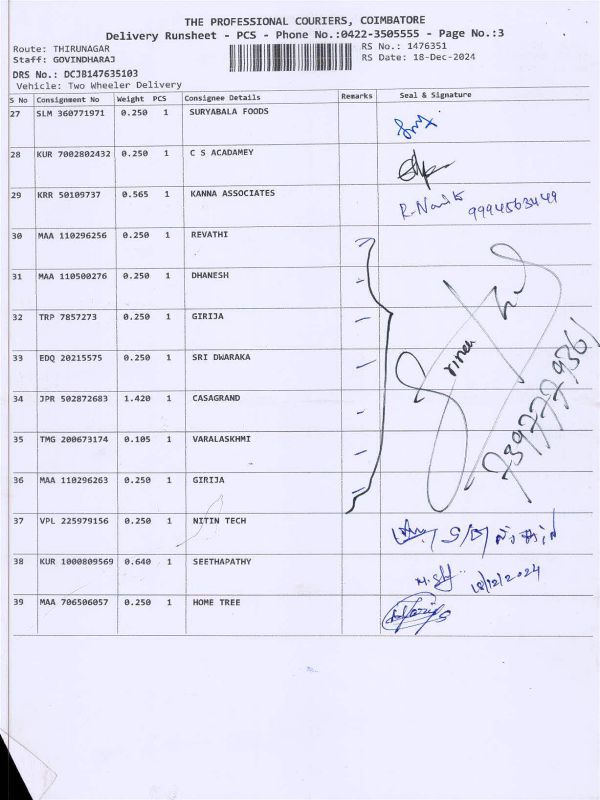 THE PROFESSIONAL COURIERS, COIMBATORE
Delivery Runsheet - PCS - Phone No.:0422-3505555 - Page No.:3
Route: THIRUNAGAR RS No.: 1476351
Staff: GOVINDHARAJ RS Date: 18-Dec-2024
DRS No.: DCJB147635103
Vehicle: Two Wheeler Delivery
S No Consignment No Weight PCS Consignee Details Remarks Seal & Signature
27 SLM 360771971 0.250 1 SURYABALA FOODS
28 KUR 7002802432 0.250 1 C S ACADAMEY
29 KRR 50109737 0.565 1 KANNA ASSOCIATES
9994563449
30 MAA 110296256 0.250 1 REVATHI
31 MAA 110500276 0.250 1 DHANESH
32 TRP 7857273 0.250 1 GIRIJA
33 EDQ 20215575 0.250 1 SRI DWARAKA
34 JPR 502872683 1.420 1 CASAGRAND
35 TMG 200673174 0.105 1 VARALASKHMI
36 MAA 110296263 0.250 1 GIRIJA
37 VPL 225979156 0.250 1 NITIN TECH
38 KUR 1000809569 0.640 1 SEETHAPATHY
18/12/2024
39 MAA 706506057 0.250 1 HOME TREE